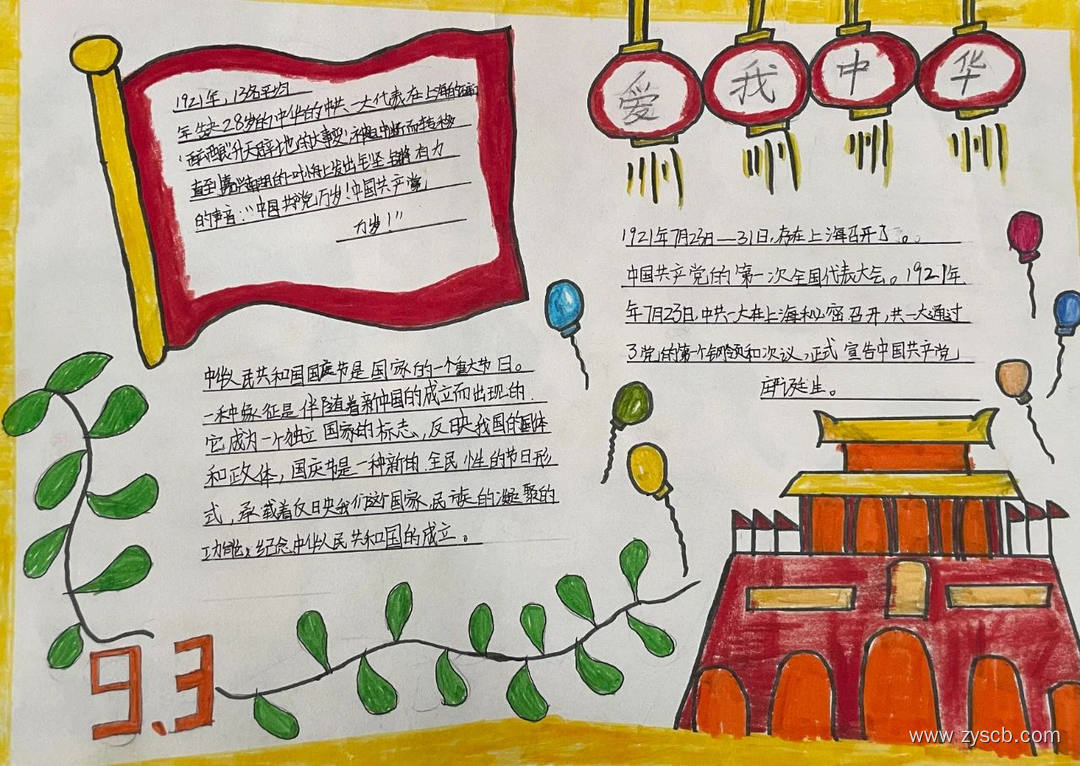 爱我中华
1921年,13名平均
年龄28岁的中华的中共一大代表在上海的
开天辟地的大事变
直至嘉兴南湖的一叶小船上发出坚 有力
的声音:"中国共产党万岁!中国共产党
万岁!"
1921年7月23日—31日,在上海召开了。
中国共产党的第一次全国代表大会。1921年
年7月23日,中共一大在上海秘密召开,共一大通过
了党的第一个纲领和决议,正式宣告中国共产党
诞生。
中华人民共和国国庆节是国家的一个重大节日。
一种象征是伴随着新中国的成立而出现的.
它成为一个独立国家的标志,反映我国的国体
和政体,国庆节是一种新的,全民性的节日形
式,承载着反映我们这个国家,民族的凝聚的
功能,纪念中华人民共和国的成立。
9.3
www.zyscb.com